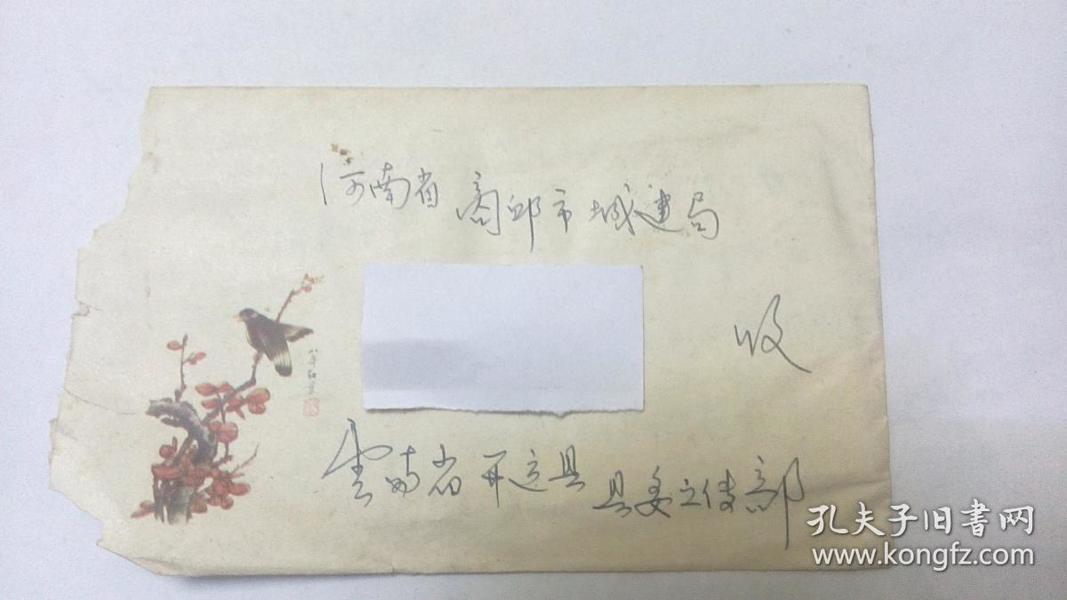 河南省 商邱市城建局
收
雲南省开远县 县委宣传部
孔夫子旧書网
www.kongfz.com